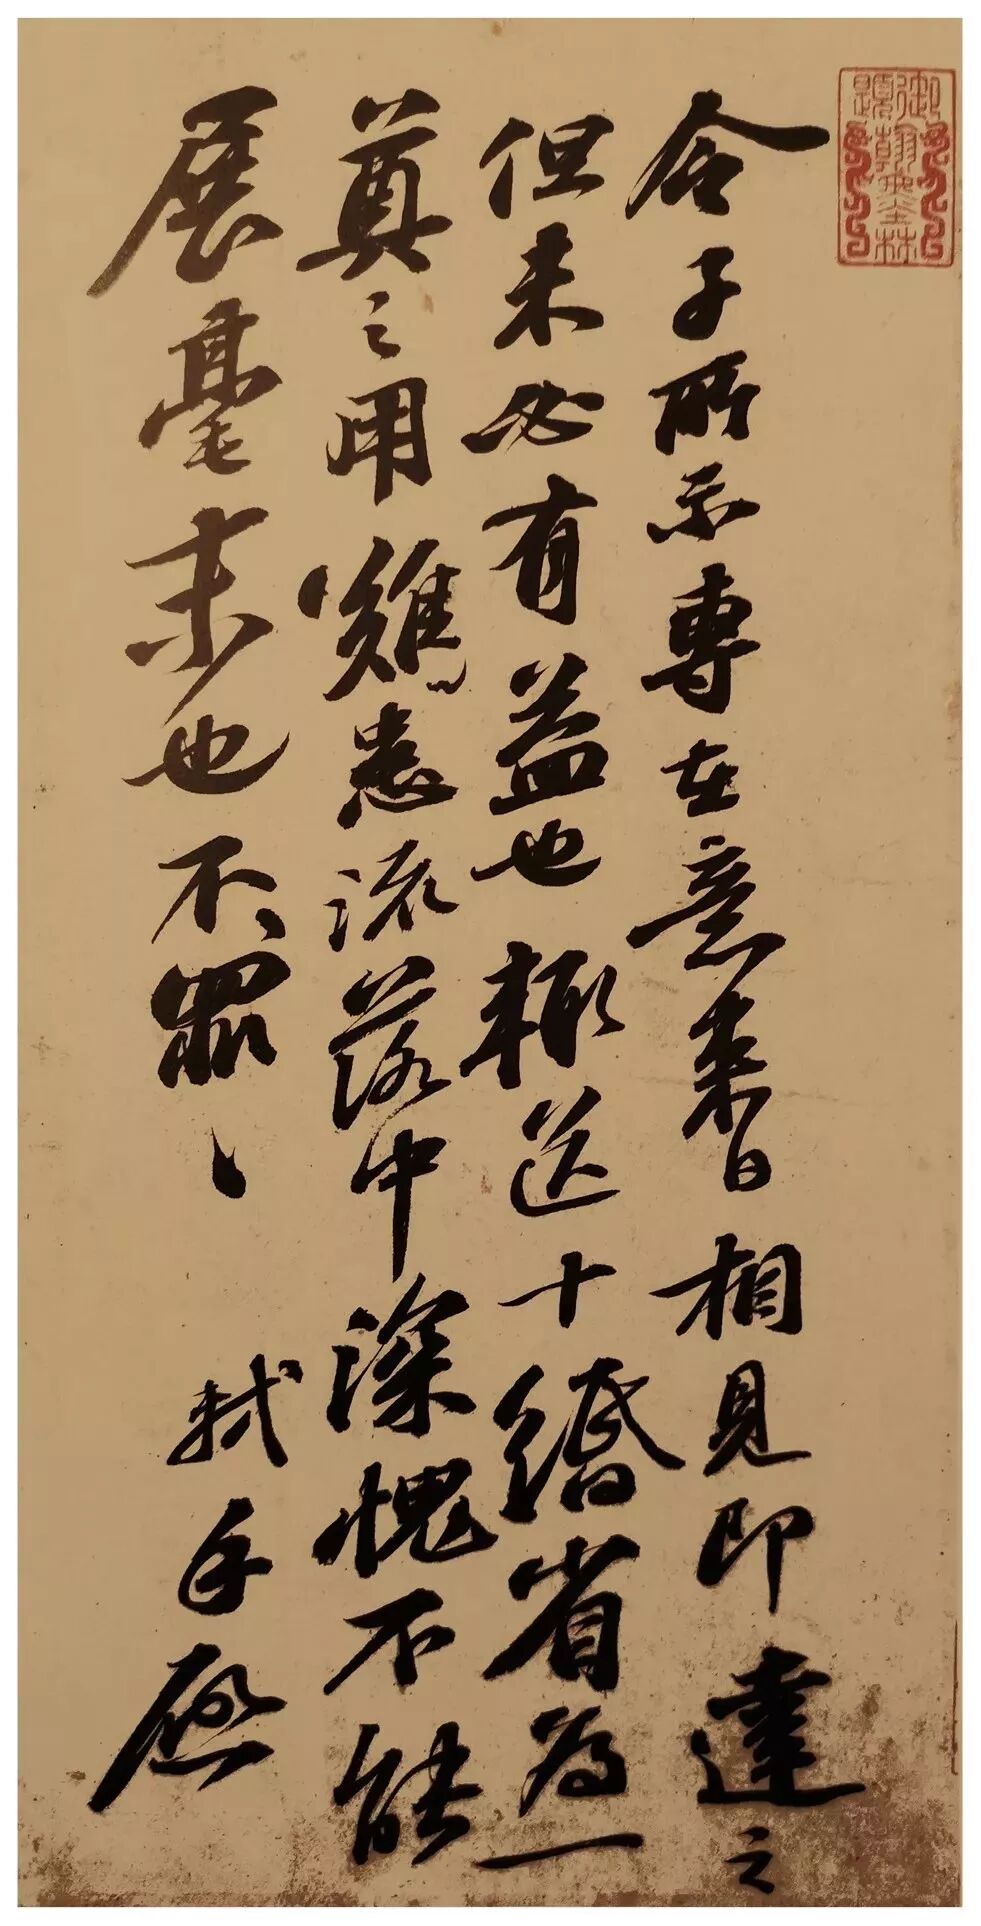 御題翰墨林
令子所示專在意來日相見即達之
但未必有益也輒送十緡省為一
奠之用難患流落中深愧不能
展毫末也不罪〻
軾手啟